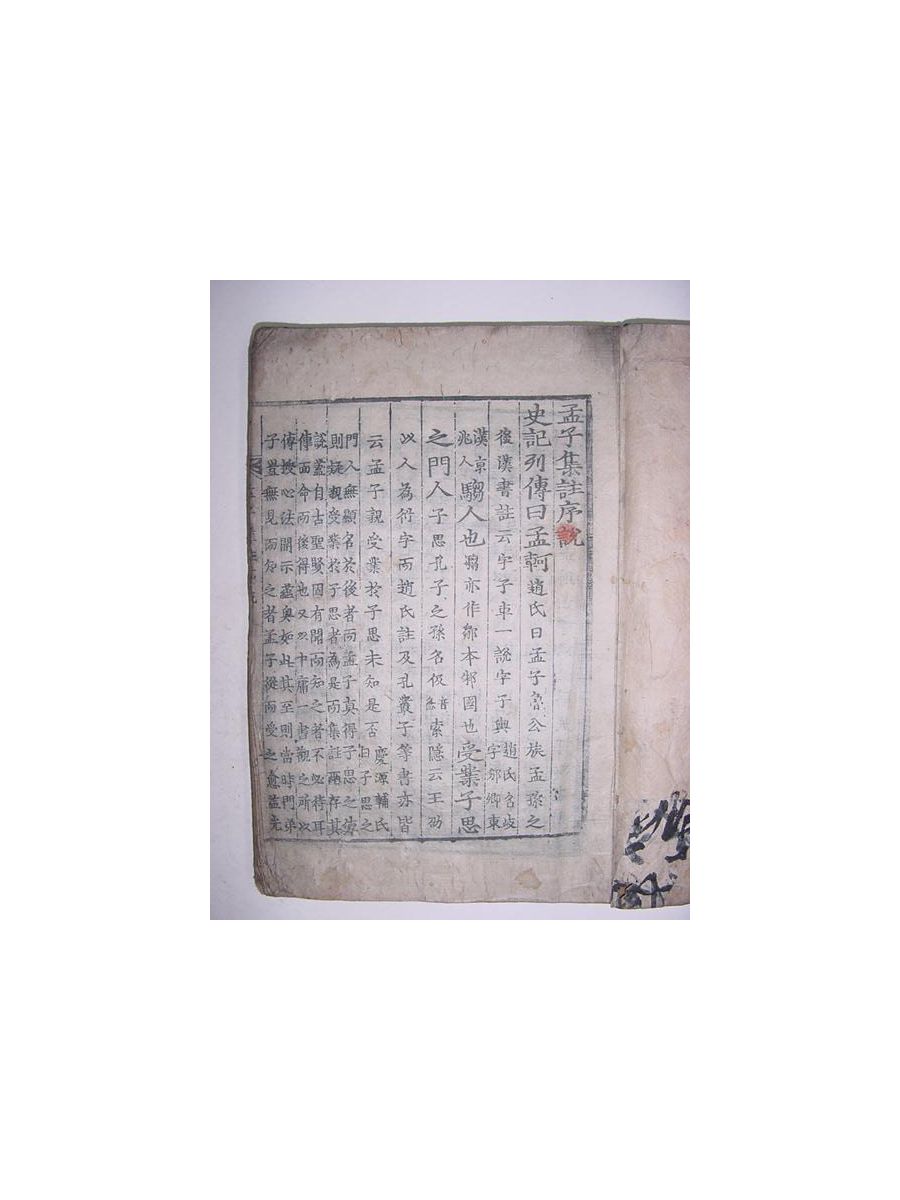 孟子集註序說
史記列傳曰孟軻趙氏曰孟子魯公族孟孫之
後漢書註云字子車一說字子輿趙氏名岐字邠卿東
漢京兆人騶人也騶亦作鄒本邾國也受業子思
之門人子思孔子之孫名伋音急索隱云王劭
以人爲衍字而趙氏註及孔叢子等書亦皆
云孟子親受業於子思未知是否慶源輔氏曰子思之
門人無顯名於後者而孟子真得子思之傳則疑親受業於子思者為是而集註兩存其
說蓋自古聖賢固有聞而知之者不必待耳傳面命而後得也又況中庸一書觀之所以
傳授心法開示蘊奧如此其至則當時門弟子豈無見而知之者孟子從而受之愈益光